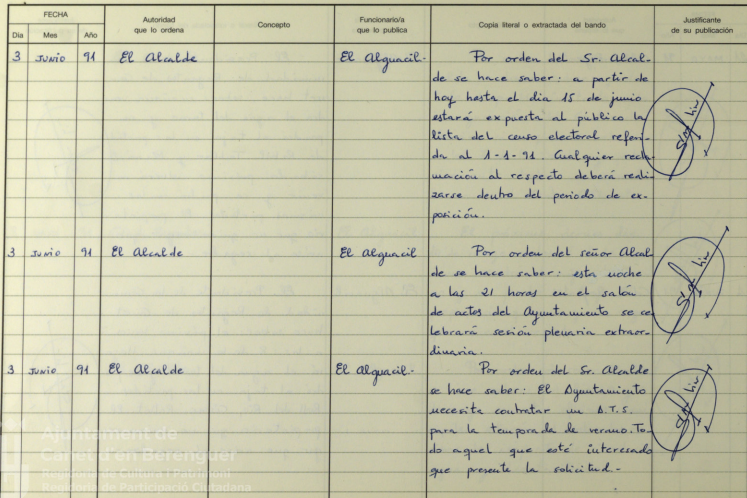 FECHA
Día Mes Año
Autoridad
que lo ordena
Concepto
Funcionario/a
que lo publica
Copia literal o extractada del bando
Justificante
de su publicación
3 JUNIO 91 El Alcalde El Alguacil.
Por orden del Sr. Alcal-
de se hace saber: a partir de
hoy hasta el dia 15 de junio
estará expuesta al público la
lista del censo electoral referi-
da al 1-1-91. Cualquier recla-
mación al respecto deberá reali-
zarse dentro del periodo de ex-
posición.
3 JUNIO 91 El Alcalde El Alguacil
Por orden del señor Alcal
de se hace saber: esta noche
a las 21 horas en el salón
de actos del Ayuntamiento se ce
lebrará sesión plenaria extraor-
dinaria.
3 JUNIO 91 El Alcalde El Alguacil.-
Por orden del Sr. Alcalde
se hace saber: El Ayuntamiento
necesita contratar un A.T.S.
para la temporada de verano. To-
do aquel que esté interesado
que presente la solicitud.-
Ajuntament de
Canet d'en Berenguer
Regidoria de Cultura i Patrimoni
Regidoria de Participació Ciutadana